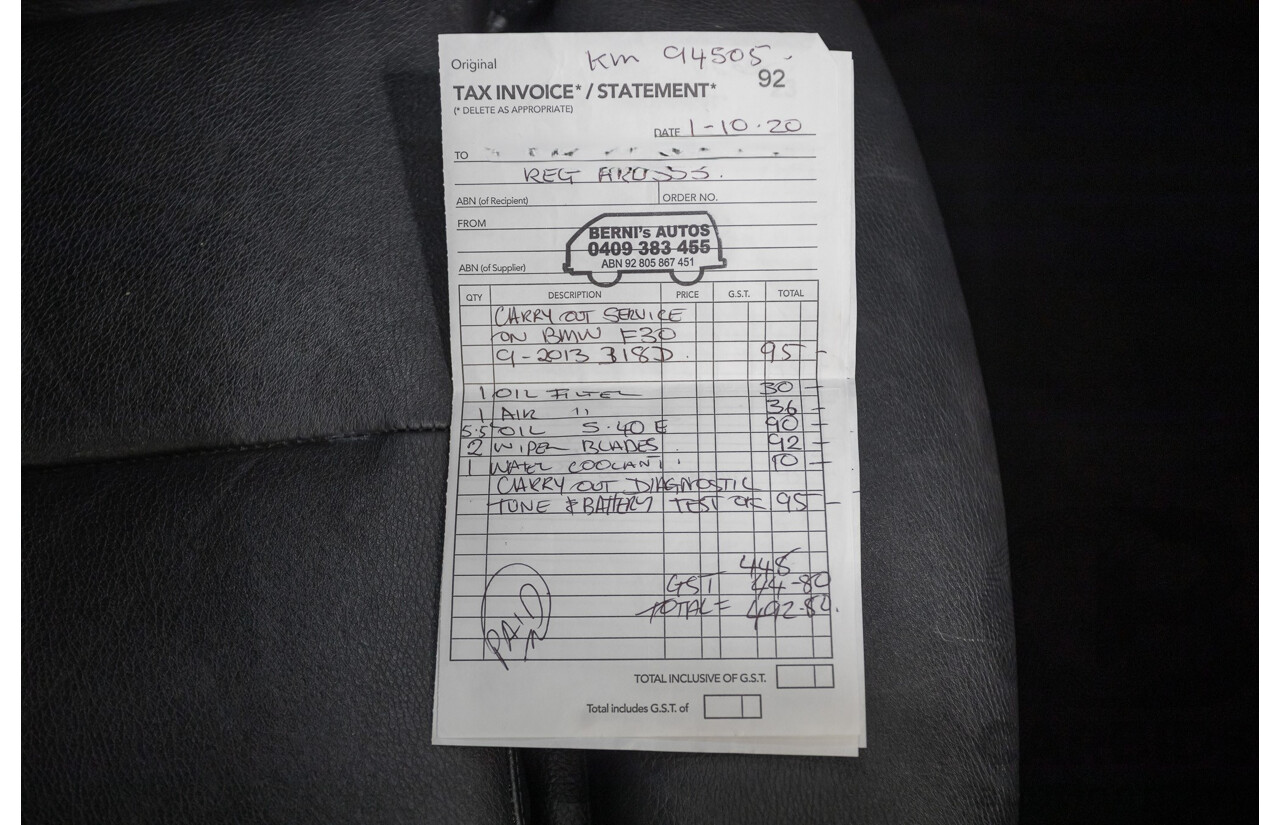 Original
Km 94505.
92
TAX INVOICE* / STATEMENT*
(* DELETE AS APPROPRIATE)
DATE 1-10.20
TO
REG
ABN (of Recipient) ORDER NO.
FROM
BERNI's AUTOS
0409 383 455
ABN 92 805 867 451
ABN (of Supplier)
QTY DESCRIPTION PRICE G.S.T. TOTAL
CARRY OUT SERVICE
ON BMW F30
9-2013 318D. 95 -
1 OIL FILTER 30 -
1 AIR " 36 -
5.5 OIL 5.40 E 90 -
2 WIPER BLADES. 92 -
1 WATER COOLANT. 10 -
CARRY OUT DIAGNOSTIC
TUNE & BATTERY TEST OK 95 -
448
GST 44-80
TOTAL = 492-80.
PAID
TOTAL INCLUSIVE OF G.S.T.
Total includes G.S.T. of